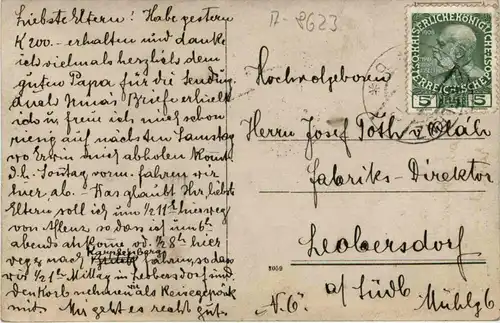 Liebste Eltern! Habe gestern
K 200.- erhalten und danke
ich vielmals herzlich dem
guten Papa für die Sendung.
Auch Irmas Brief erhielt
ich u. freue ich mich schon
riesig auf nächsten Samstag
wo Erwin mich abholen kommt
d.h. Sonntag vorm. fahren wir
hier ab. Was glaubt Ihr, liebste
Eltern, soll ich um ½ 11 h hierweg
von Aflenz so dass ich um 6 h
abends ankomme od. ½ 8 h hier
weg nach fahren, so dass
wir ½ 1 h Mittag in Leobersdorf sind
den Korb nehmen wir als Reisegepäck
mit. Mir geht es recht gut.
A-8623
KAISERLICHE KÖNIGLICHE
ÖSTERREICHISCHE POST
5 5
Hochwolgeboren
Herrn Josef Tóth v
Fabriks-Direktor
Leobersdorf
a/ Südb
N. Ö.
Mühlg 6